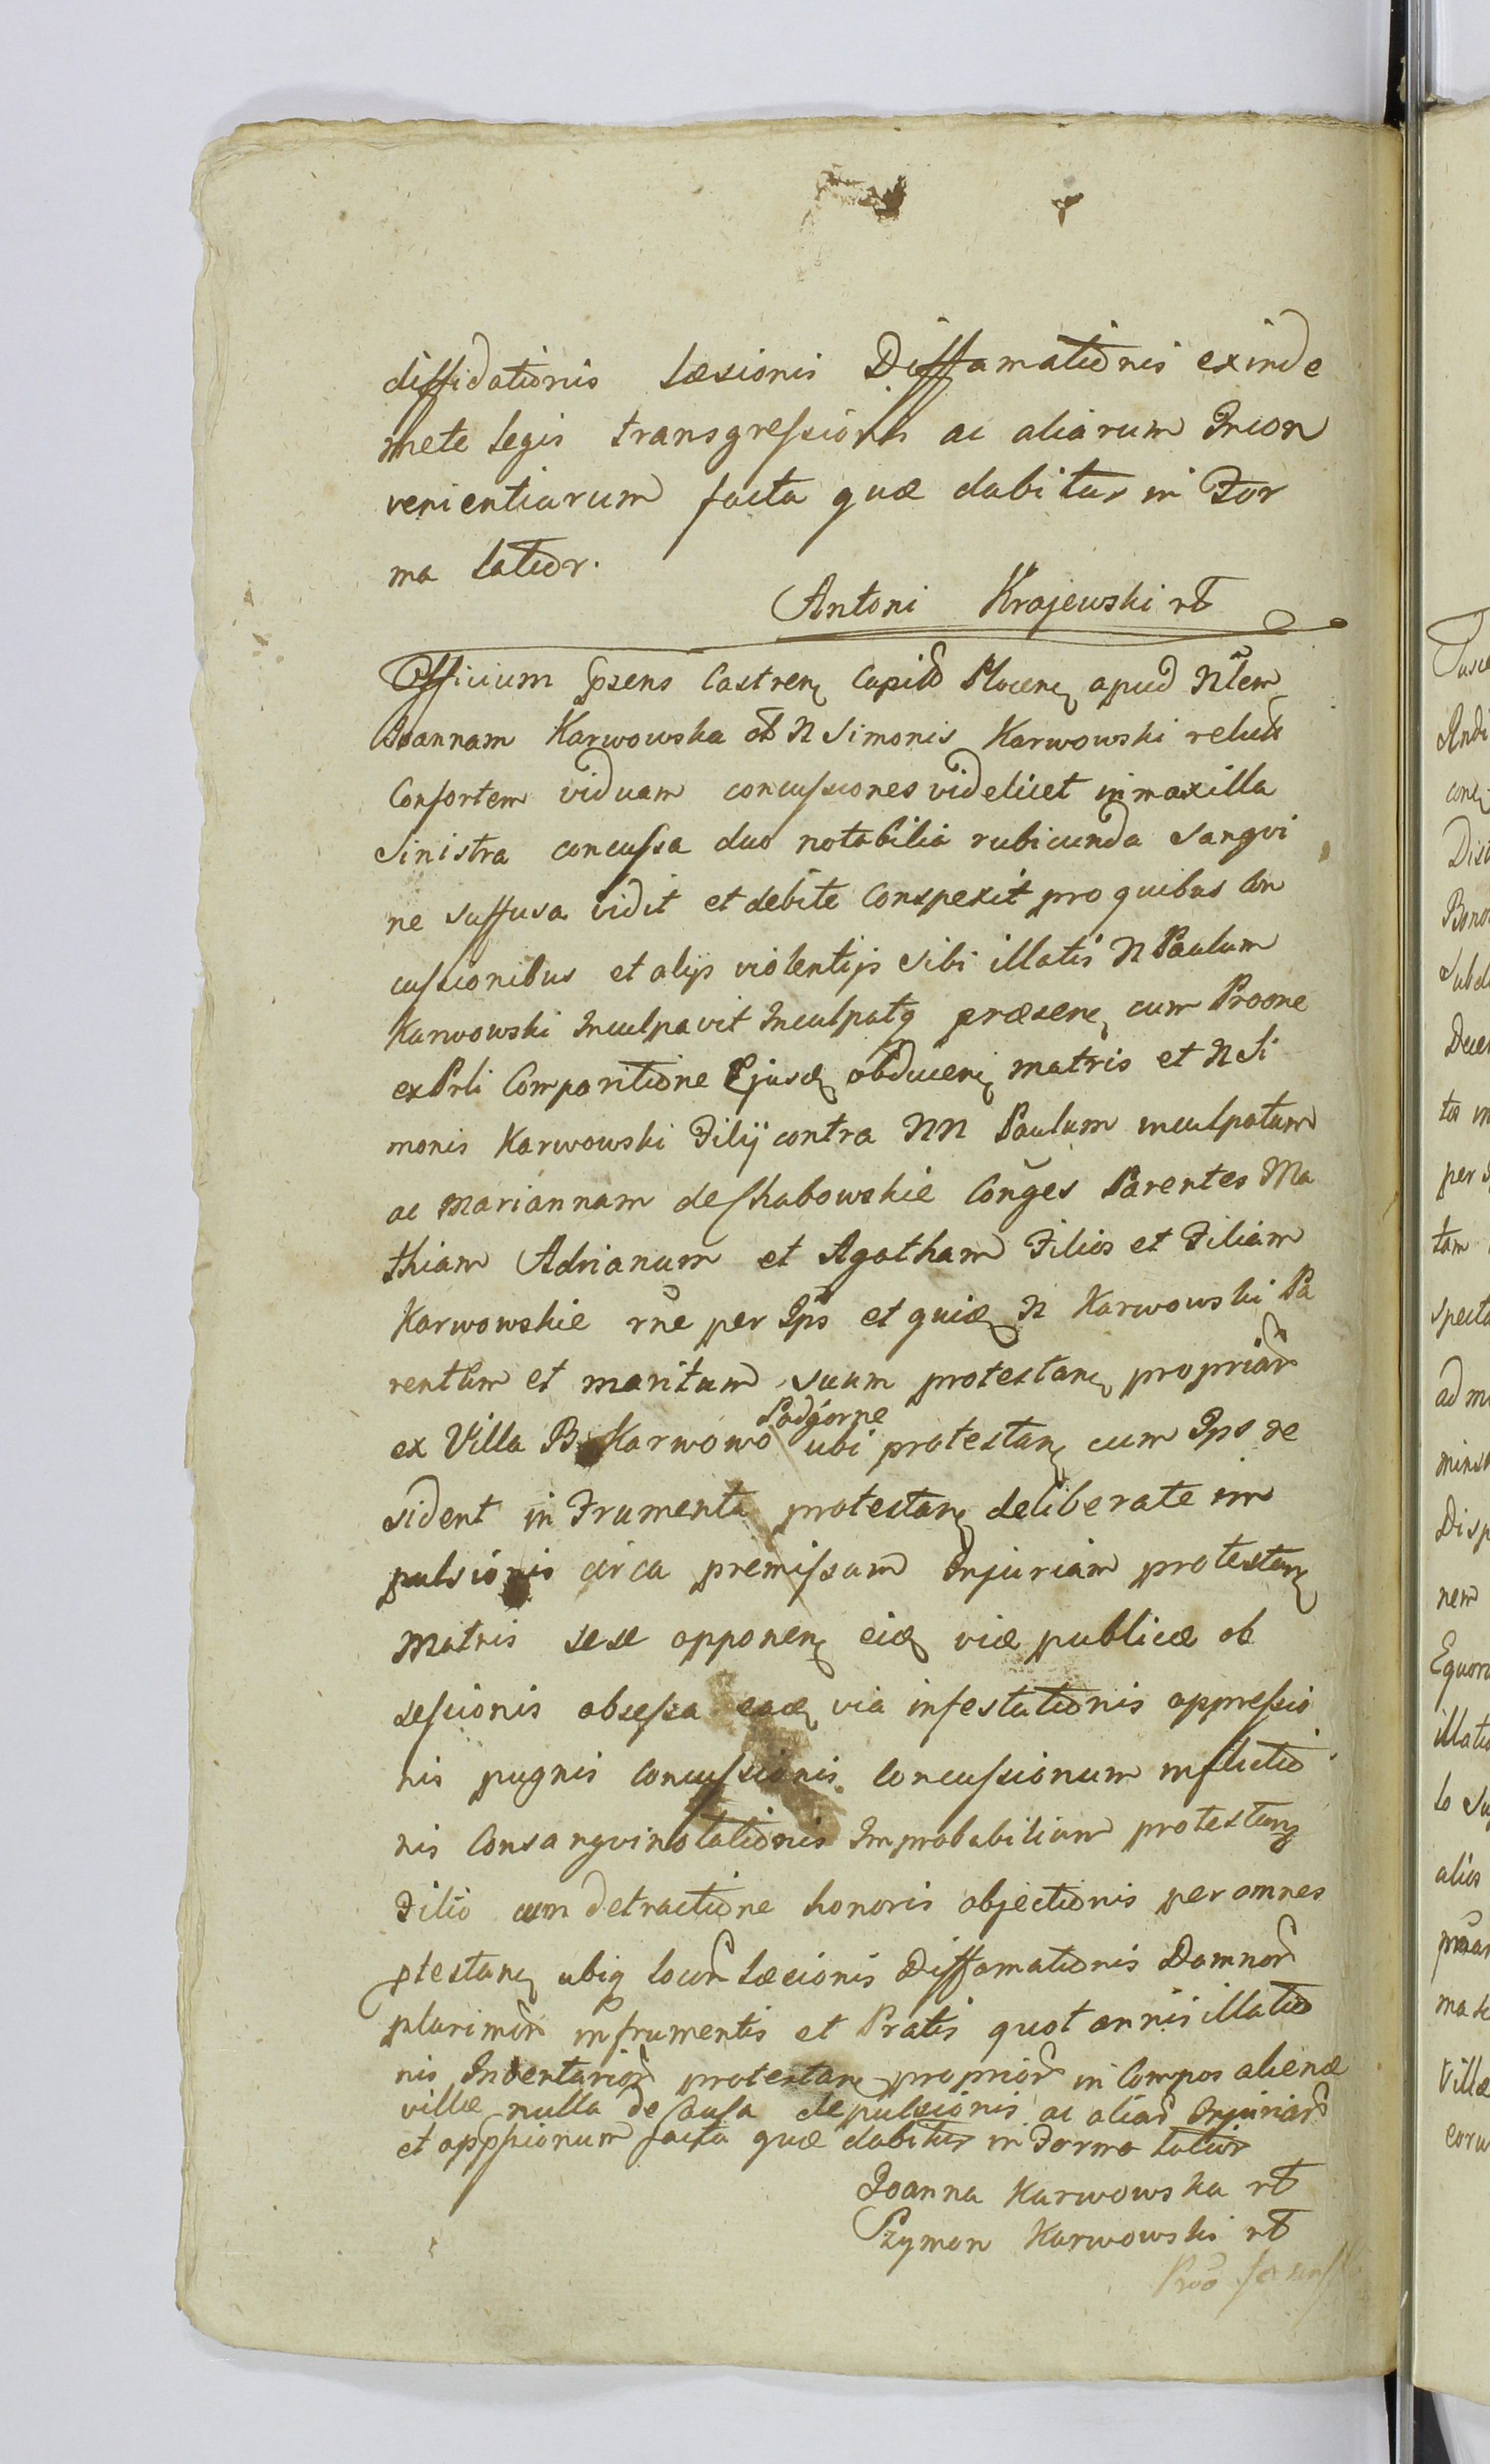 diffidationis Læsionis Diffamationis exinde
mete Legis transgressionis ac aliarum Incon
venientiarum facta quæ dabitur in For
ma Latior.
Antoni Krajewski rt
Officium Ppsens Castren Capitt Plocen apud Nlem
Joannam Karwowska ot N Simonis Karwowski relict
Consortem viduam concussiones videlicet in maxilla
Sinistra concussa duo notabilia rubicunda Sangvi
ne suffusa vidit et debite Conspexit pro quibus Con
cussionibus et alijs violentijs Sibi illatis N Paulum
Karwowski Inculpavit Inculpatq præsen cum Proōne
ex Prli Comparitione Ejusd obducen matris et N Si
monis Karwowski Filij contra NN Paulum inculpatum
ac Mariannam de Skabowskie Conges Parentes Ma
thiam Adrianum et Agatham Filios et Filiam
Karwowskie rne per Ips et quid N Karwowski Pa
rentem et maritum suum protestan propriar
ex Villa B Karwowo Podgórne ubi protestan cum Ips re
sident in Frumenta protestan deliberate im
pulsionis circa premissam Injuriam protestan
Matris sese opponen eid viæ publicæ ob
sessionis obsessa ead via infestationis oppressio
nis pugnis Concussionis Concussionum inflictio
nis Consangvinolationis Improbabilium protestan
Filio cum detractione honoris objectionis per omnes
ptestan ubiq locor Læsionis Diffamationis Damnor
plurimor in frumentis et Pratis quot annis illatio
nis Inventarior protestan proprior in Campos alienæ
villæ nulla de Causa depulsionis ac aliar Injuriar
et oppssionum facta quæ dabitur in Forma Latior
Joanna Karwowska rt
Szymon Karwowski rt